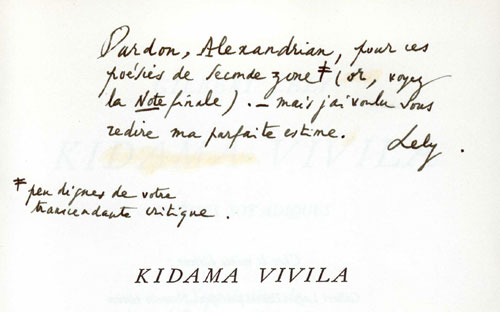 Pardon, Alexandrian, pour ces
poésies de seconde zone ‡ (or, voyez
la Note finale). — mais j'ai voulu vous
redire ma parfaite estime. Lely.
‡ peu dignes de votre
transcendante critique.
KIDAMA VIVILA